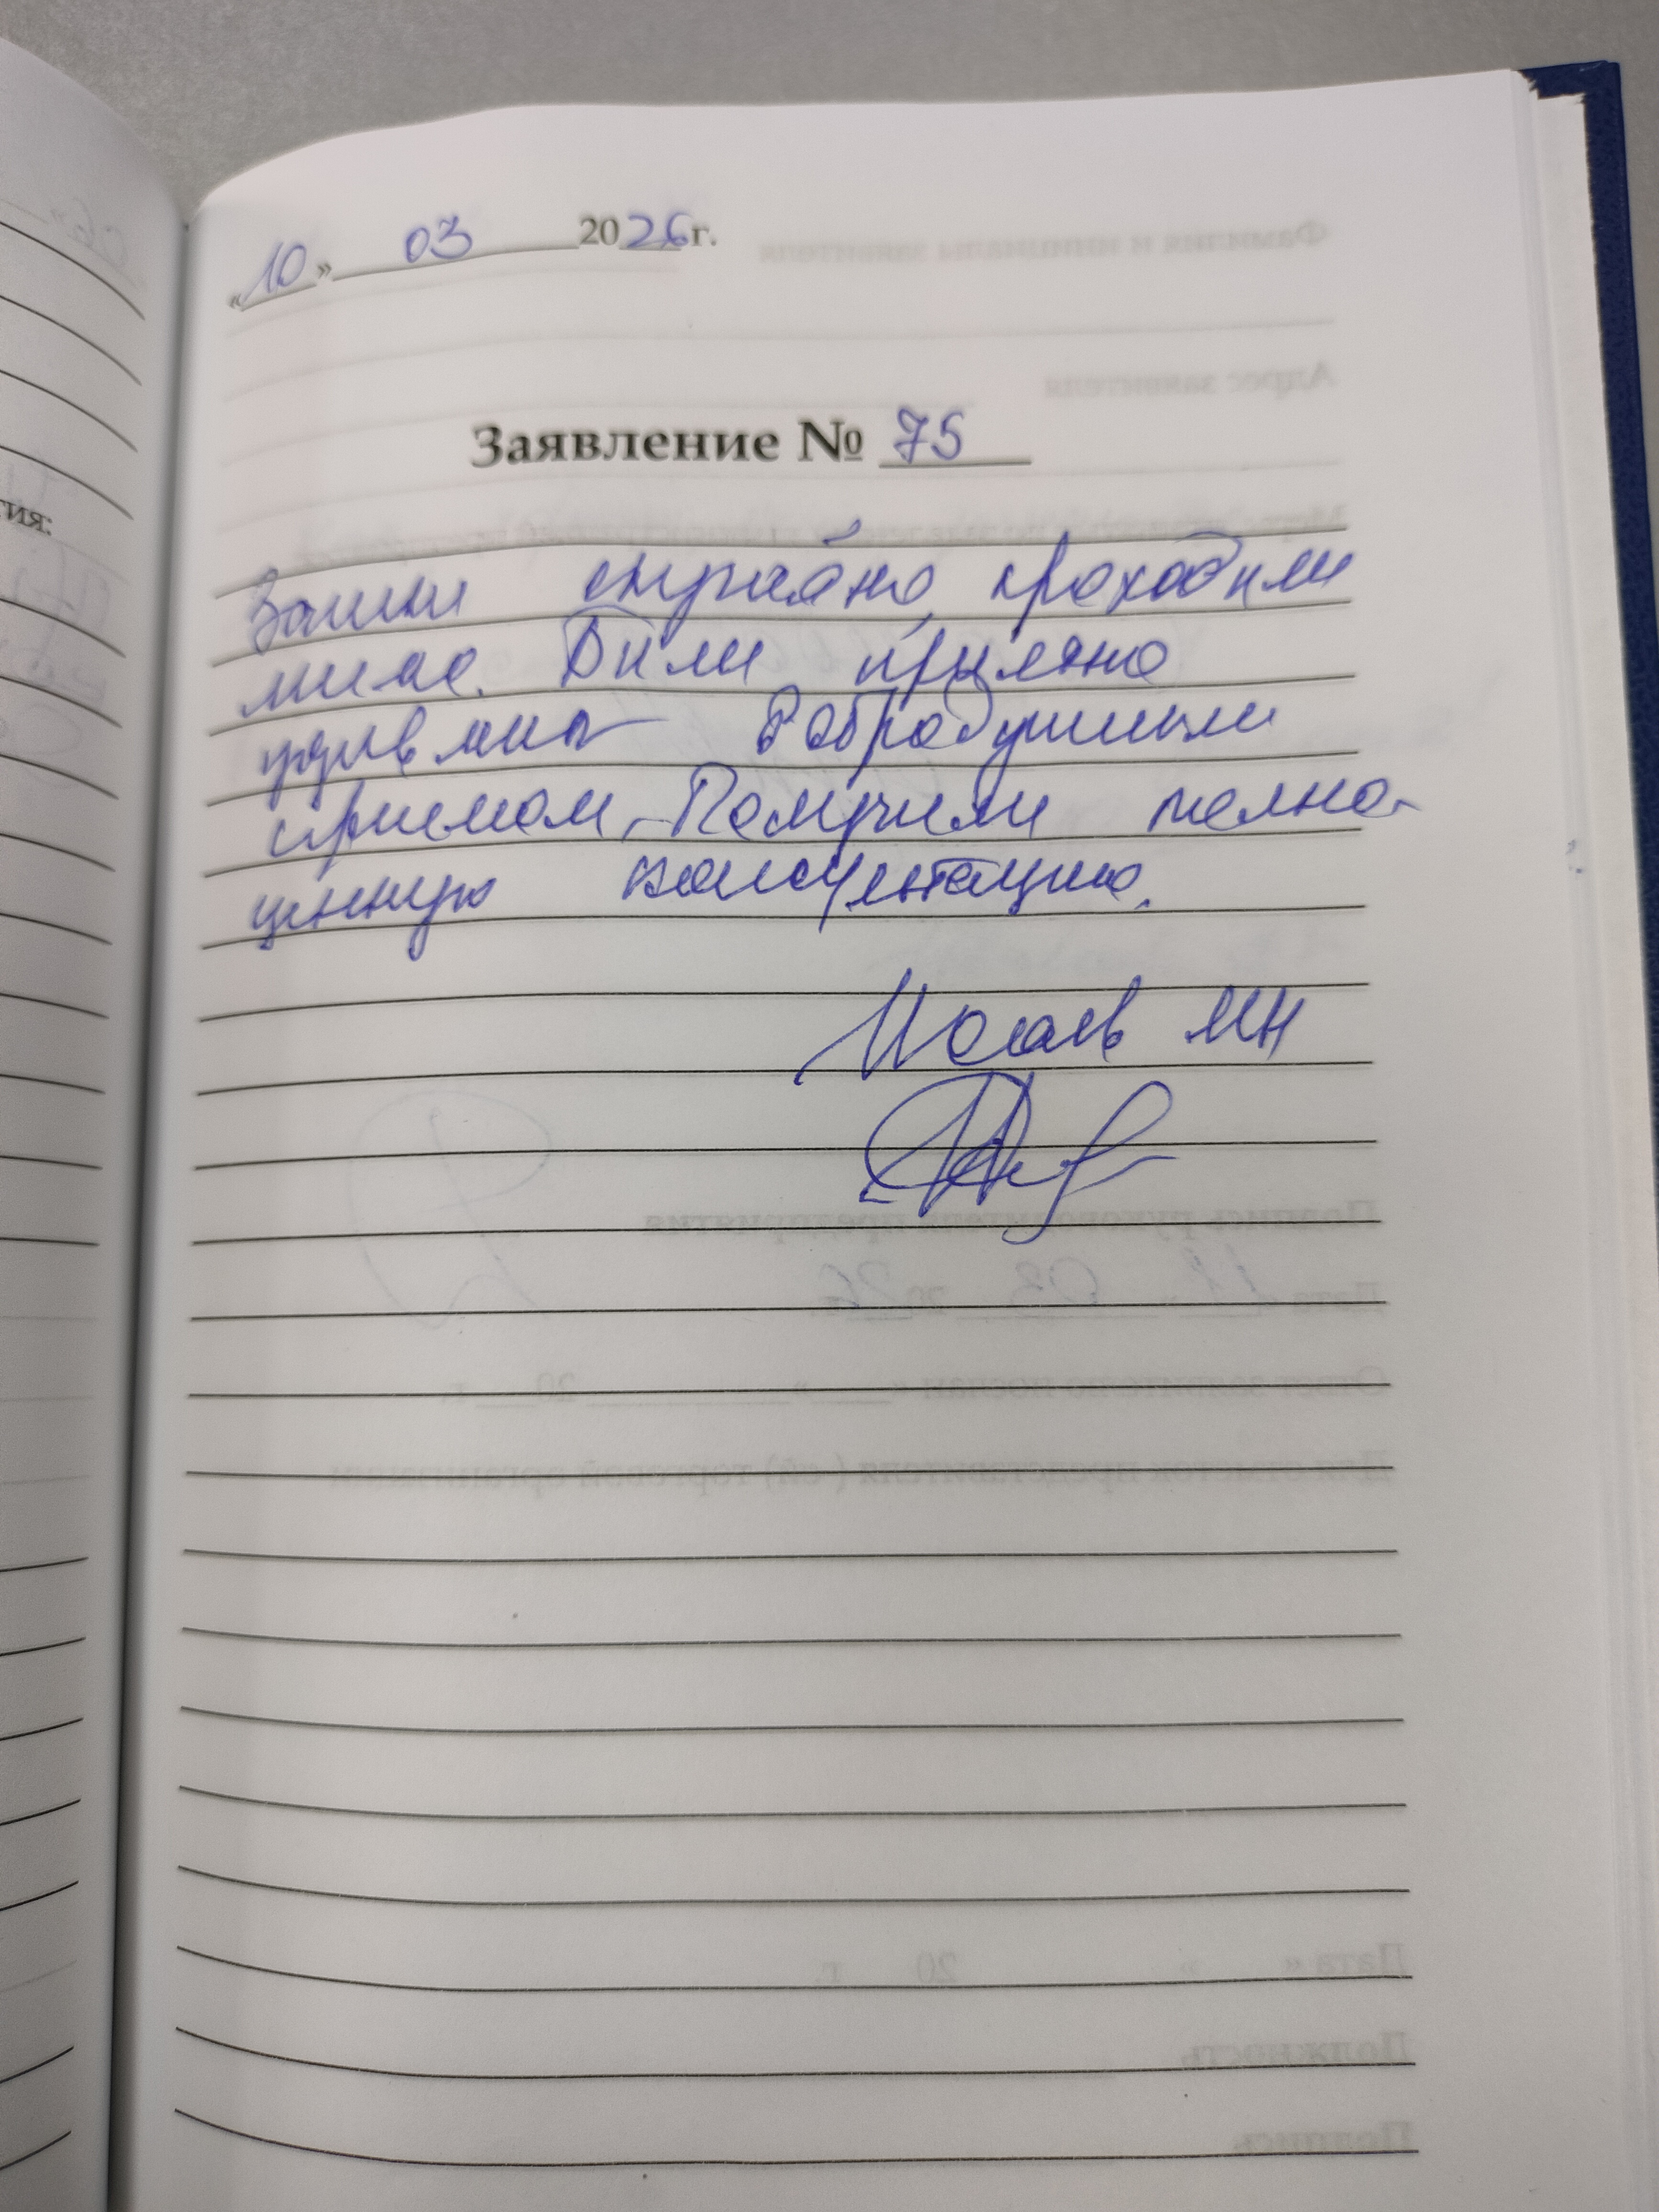 «10» 03 2026г.
Заявление № 75
Зашли случайно, проходили
мимо. Были приятно
удивлены добродушным
приемом. Получили полно-
ценную консультацию.
Исаев МН